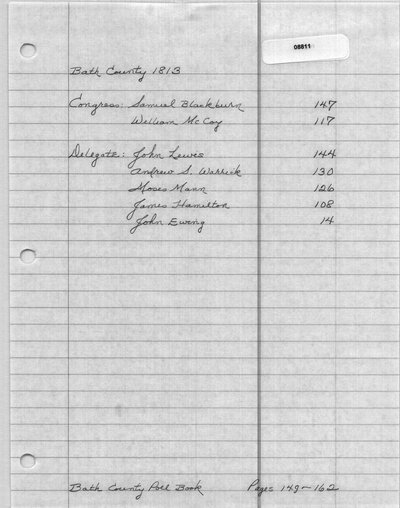 08811
Bath County 1813
Congress: Samuel Blackburn 147
William McCoy 117
Delegate: John Lewis 144
Andrew S. Warrick 130
Moses Mann 126
James Hamilton 108
John Ewing 14
Bath County Poll Book Pages 149-162